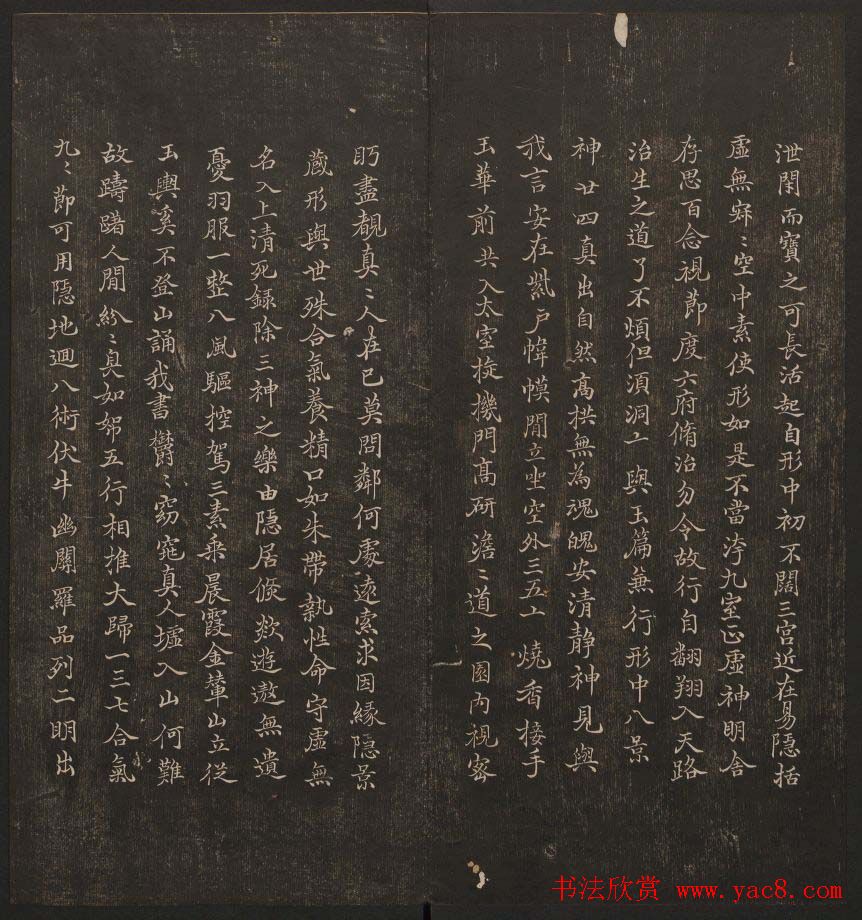 泄閑而寶之可長活起自形中初不闊三宮近在易隱括
虛無寂〻空中素使形如是不當洿九室正虛神明舍
存思百念視節度六府脩治勿令故行自翱翔入天路
治生之道了不煩但須洞亠與玉篇兼行形中八景
神廿四真出自然高拱無為魂魄安清静神見與
我言安在紫戶幃幙閒立坐空外三五亠燒香接手
玉華前共入太室璇機門高研澹〻道之園內視密
眄盡覩真〻人在己莫問鄰何處遠索求因緣隱景
藏形與世殊合氣養精口如朱帶執性命守虛無
名入上清死錄除三神之樂由隱居倏欻遊遨無遺
憂羽服一整八風驅控駕三素乘晨霞金輦山立從
玉輿奚不登山誦我書鬱〻窈窕真人墟入山何難
故躊躇人閒紛〻臭如帤五行相推大歸一三七合氣
九〻節可用隱地迴八術伏牛幽闕羅品列二明出
书法欣赏 www.yac8.com